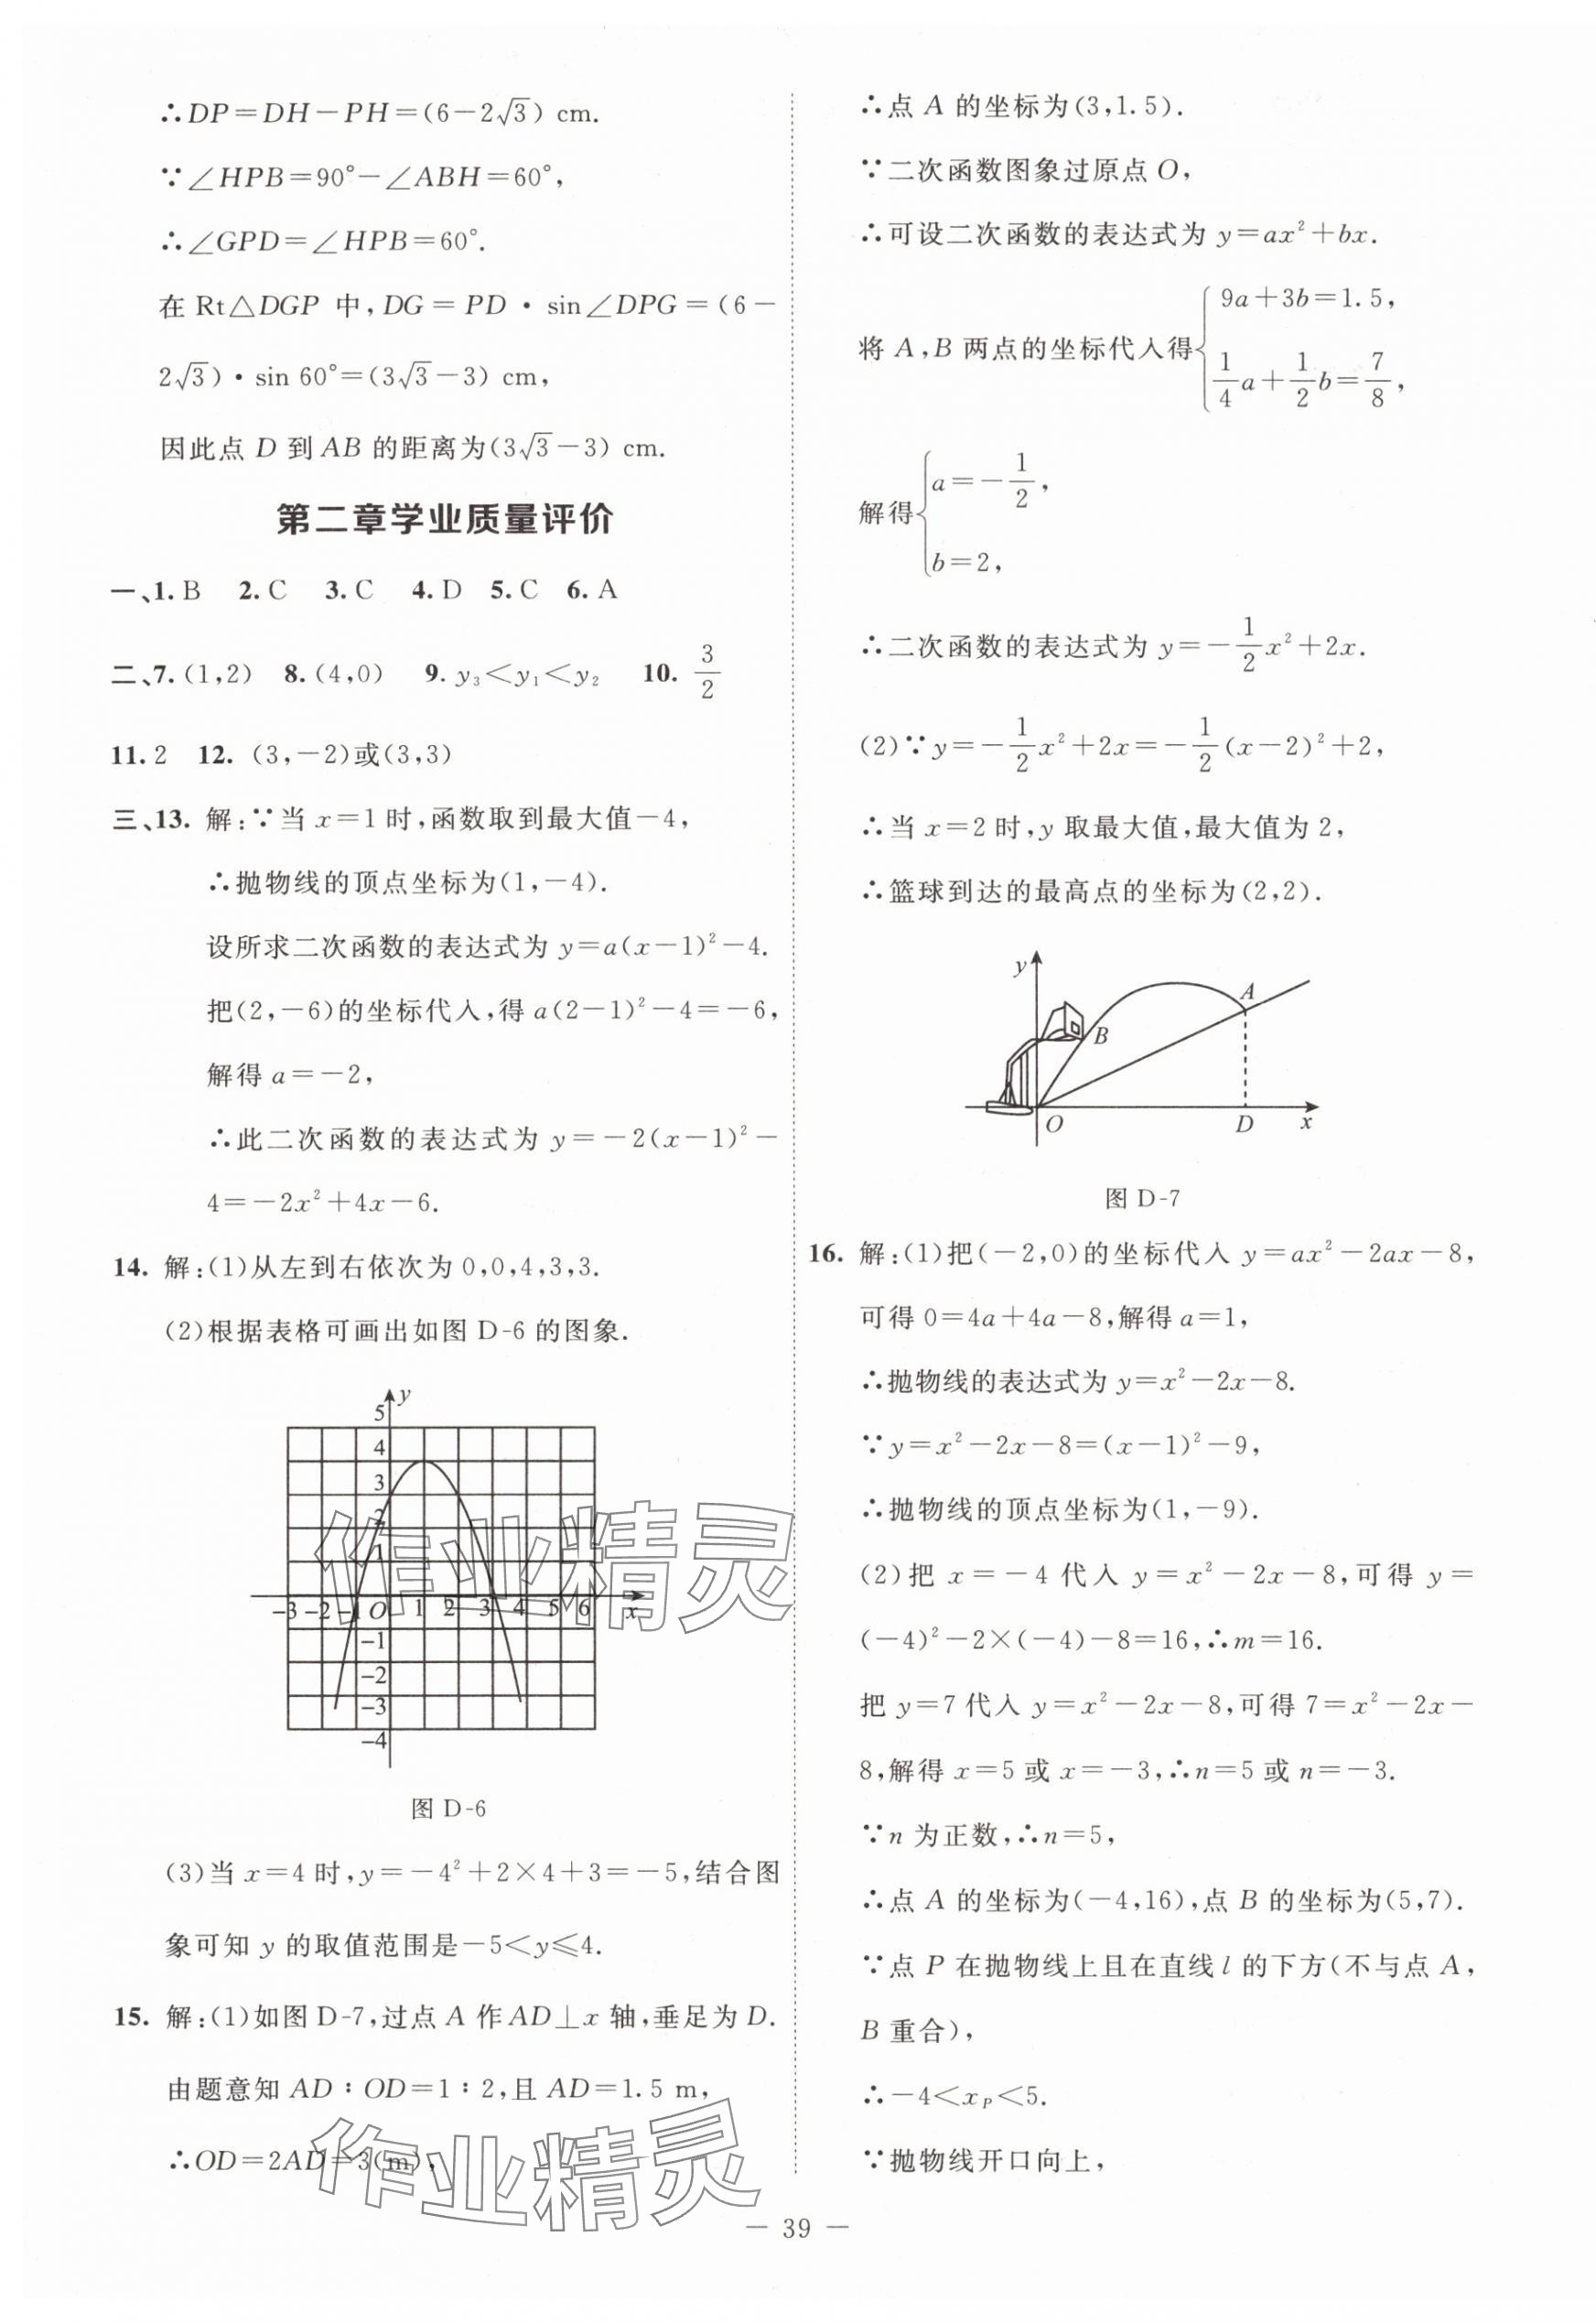 ∴DP=DH-PH=(6-2√3) cm.
∵∠HPB=90°-∠ABH=60°,
∴∠GPD=∠HPB=60°.
在 Rt△DGP 中,DG=PD·sin∠DPG=(6-
2√3)·sin 60°=(3√3-3) cm,
因此点 D 到 AB 的距离为(3√3-3) cm.
第二章学业质量评价
一、1. B 2. C 3. C 4. D 5. C 6. A
二、7. (1,2) 8. (4,0) 9. y₃<y₁<y₂ 10. 3/2
11. 2 12. (3,-2)或(3,3)
三、13. 解:∵当 x=1 时,函数取到最大值-4,
∴抛物线的顶点坐标为(1,-4).
设所求二次函数的表达式为 y=a(x-1)²-4.
把(2,-6)的坐标代入,得 a(2-1)²-4=-6,
解得 a=-2,
∴此二次函数的表达式为 y=-2(x-1)²-
4=-2x²+4x-6.
14. 解:(1)从左到右依次为 0,0,4,3,3.
(2)根据表格可画出如图 D-6 的图象.
y
5
4
3
2
1
-3 -2 -1 O 1 2 3 4 5 6 x
-1
-2
-3
-4
图 D-6
(3)当 x=4 时,y=-4²+2×4+3=-5,结合图
象可知 y 的取值范围是-5<y≤4.
15. 解:(1)如图 D-7,过点 A 作 AD⊥x 轴,垂足为 D.
由题意知 AD∶OD=1∶2,且 AD=1.5 m,
∴OD=2AD=3(m),
∴点 A 的坐标为(3,1.5).
∵二次函数图象过原点 O,
∴可设二次函数的表达式为 y=ax²+bx.
将 A,B 两点的坐标代入得{9a+3b=1.5,
1/4a+1/2b=7/8,
解得{a=-1/2,
b=2,
∴二次函数的表达式为 y=-1/2x²+2x.
(2)∵y=-1/2x²+2x=-1/2(x-2)²+2,
∴当 x=2 时,y 取最大值,最大值为 2,
∴篮球到达的最高点的坐标为(2,2).
y
A
B
O D x
图 D-7
16. 解:(1)把(-2,0)的坐标代入 y=ax²-2ax-8,
可得 0=4a+4a-8,解得 a=1,
∴抛物线的表达式为 y=x²-2x-8.
∵y=x²-2x-8=(x-1)²-9,
∴抛物线的顶点坐标为(1,-9).
(2)把 x=-4 代入 y=x²-2x-8,可得 y=
(-4)²-2×(-4)-8=16,∴m=16.
把 y=7 代入 y=x²-2x-8,可得 7=x²-2x-
8,解得 x=5 或 x=-3,∴n=5 或 n=-3.
∵n 为正数,∴n=5,
∴点 A 的坐标为(-4,16),点 B 的坐标为(5,7).
∵点 P 在抛物线上且在直线 l 的下方(不与点 A,
B 重合),
∴-4<x_P<5.
∵抛物线开口向上,
作业精灵
作业精灵
— 39 —